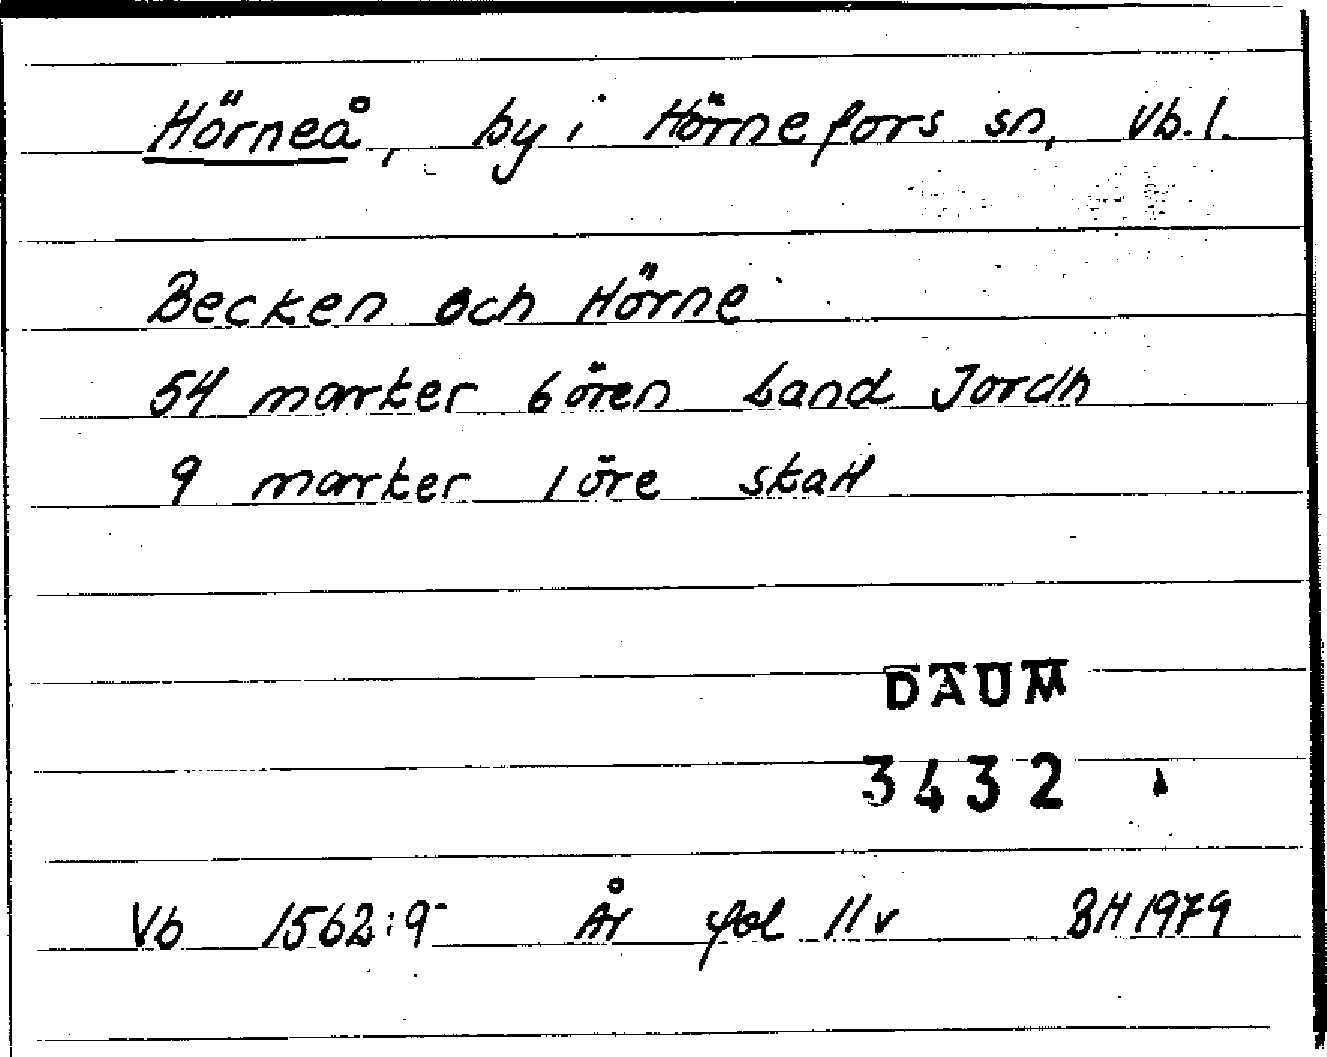 Hörneå, by i Hörnefors sn, Vb. l.
Becken och Hörne
54 marker 6 ören Land Jordh
9 marker 1 öre skatt
DAUM
3432
Vb 1562:9 År fol 11v BH 1979